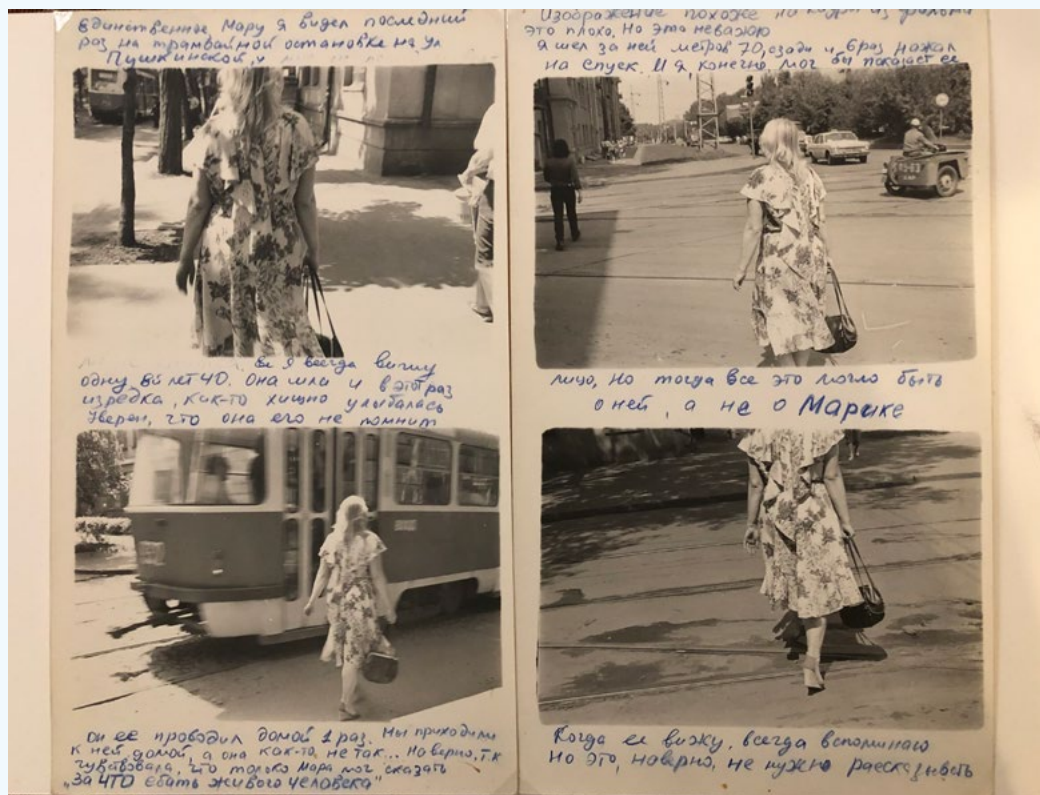 единственное Мару я видел последний
раз на трамвайной остановке на ул
Пушкинской, у
ее Я всегда вижу
одну вй лет 40. Она шла и в этот раз
изредка, как-то хищно улыбалась
Уверен, что она его не помнит
он ее проводил домой 1 раз. Мы приходили
к ней домой, а она как-то не так... Наверно, т.к
чувствовала, что только Мара мог, сказать
„За ЧТО ебать живого человека"
Изображение похоже на кадры из фильма
это плохо. Но это неважно
я шел за ней метров 70, сзади и 6 раз нажал
на спуск. И я, конечно, мог бы показать ее
лицо, но тогда все это могло быть
о ней, а не о Марике
Когда ее вижу, всегда вспоминаю
Но это, наверно, не нужно рассказывать